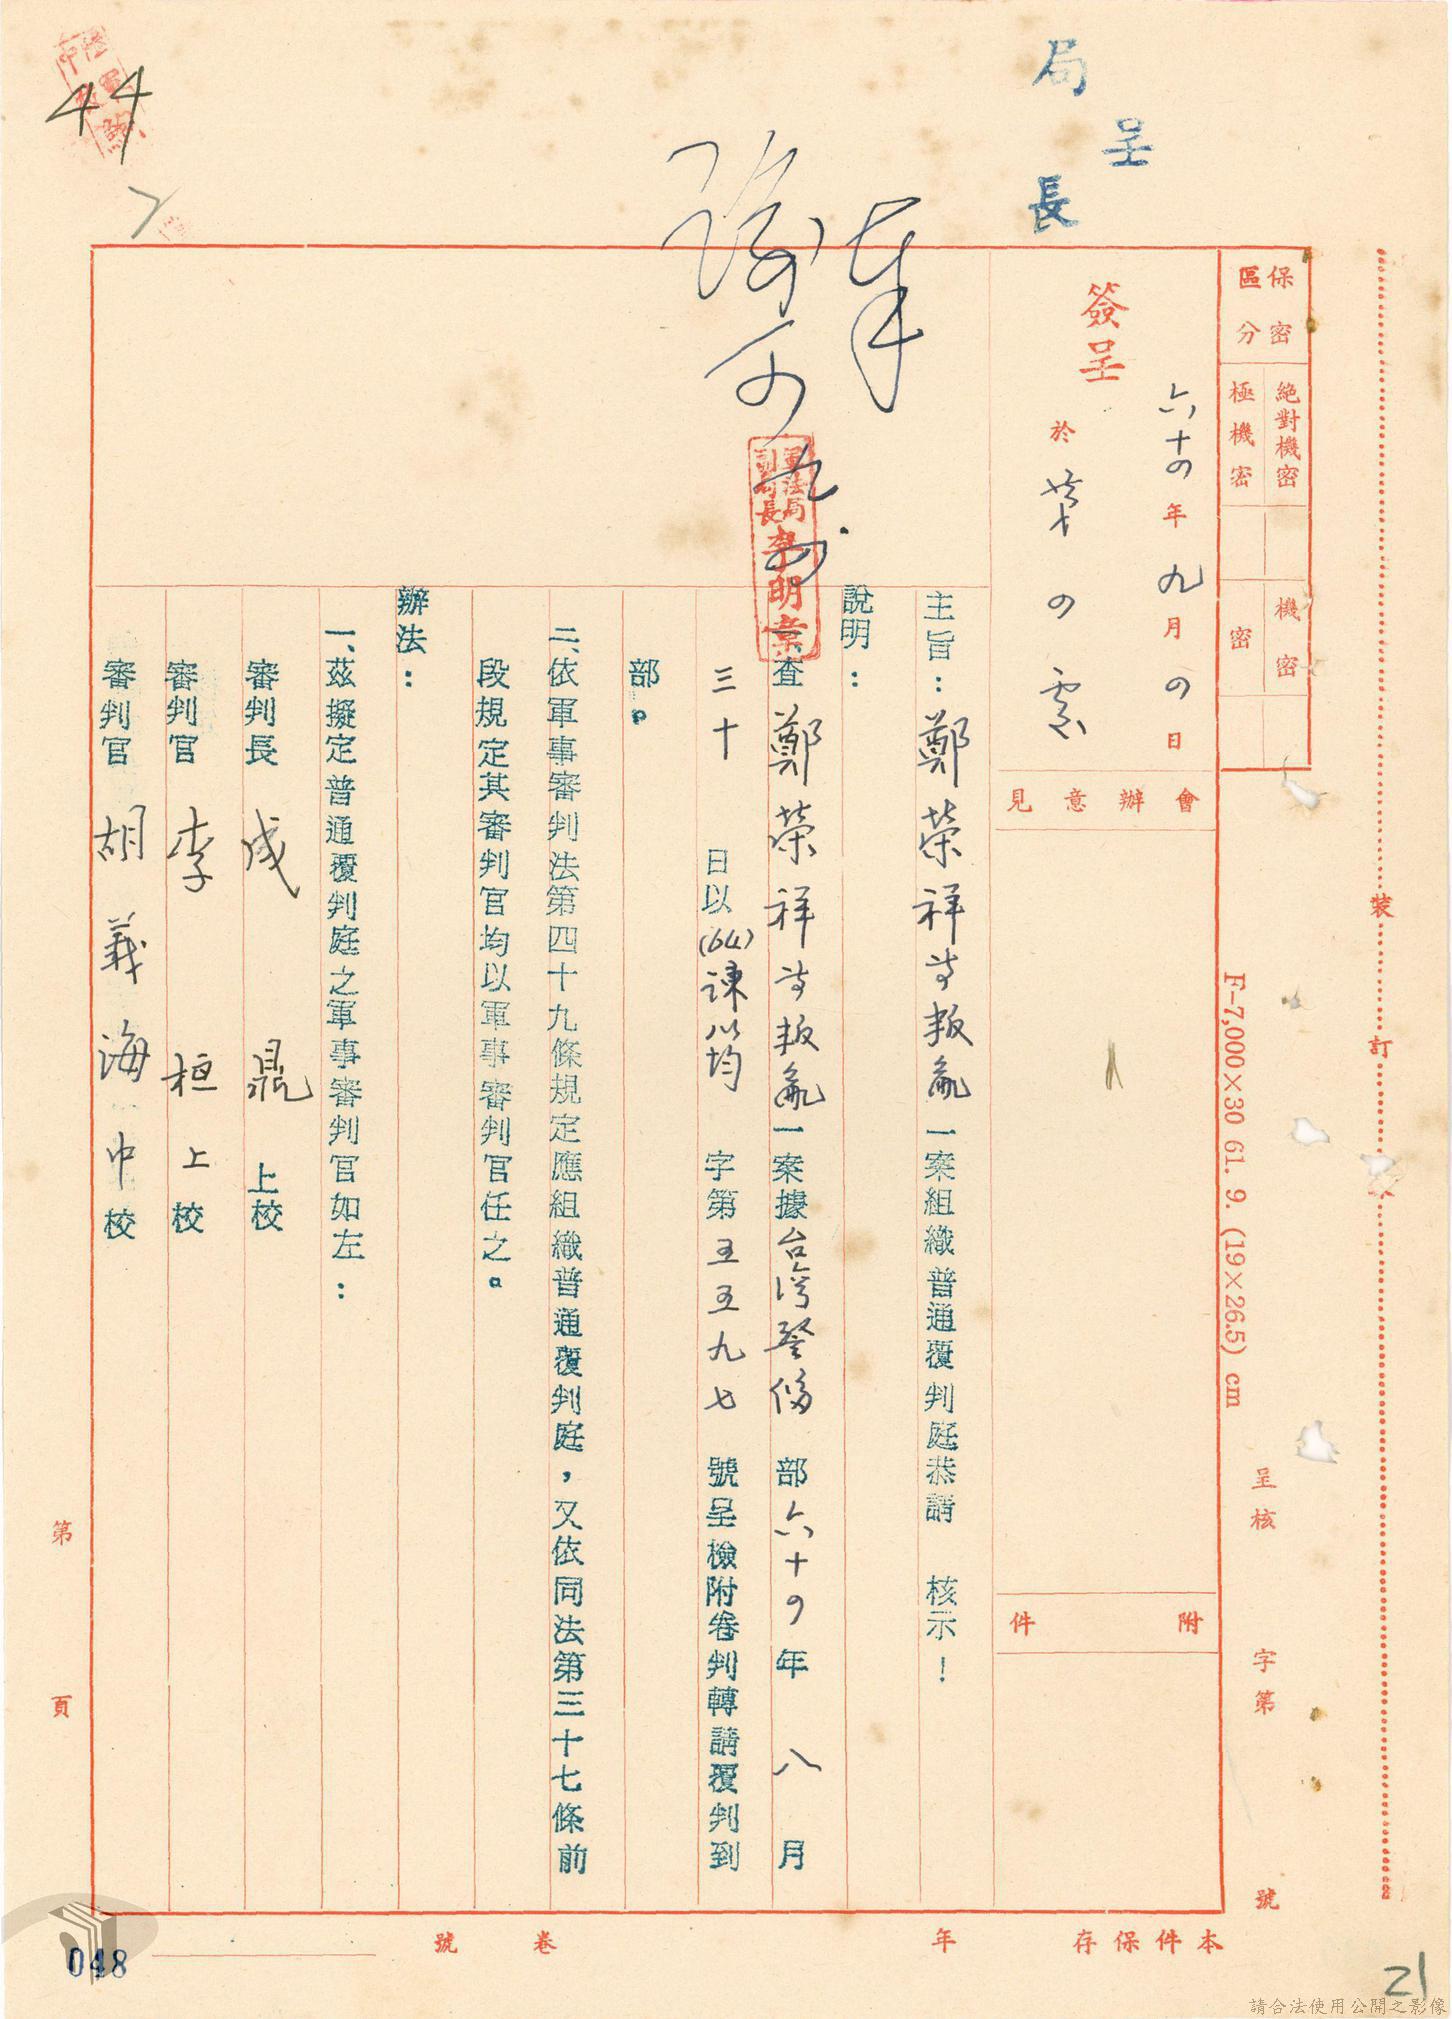 呈
局長
保密區分
絕對機密
極機密
機密
密
簽呈
六十四年九月四日
於
會辦意見
附件
主旨：鄭榮祥等叛亂一案組織普通覆判庭恭請 核示！
說明：
一、查鄭榮祥等叛亂一案據台灣警備部六十四年八月
三十日以(64)諫均字第五五九七號呈檢附卷判轉請覆判到
部。
二、依軍事審判法第四十九條規定應組織普通覆判庭，又依同法第三十七條前
段規定其審判官均以軍事審判官任之。
辦法：
一、茲擬定普通覆判庭之軍事審判官如左：
審判長 成鼎 上校
審判官 李桓 上校
審判官 胡義海 中校
軍法局副局長李明棠
裝訂
F-7,000×30 61. 9. (19×26.5) cm
呈核 字第 號
第 頁
本件保存 年 卷 號
44
048
21
請合法使用公開之影像